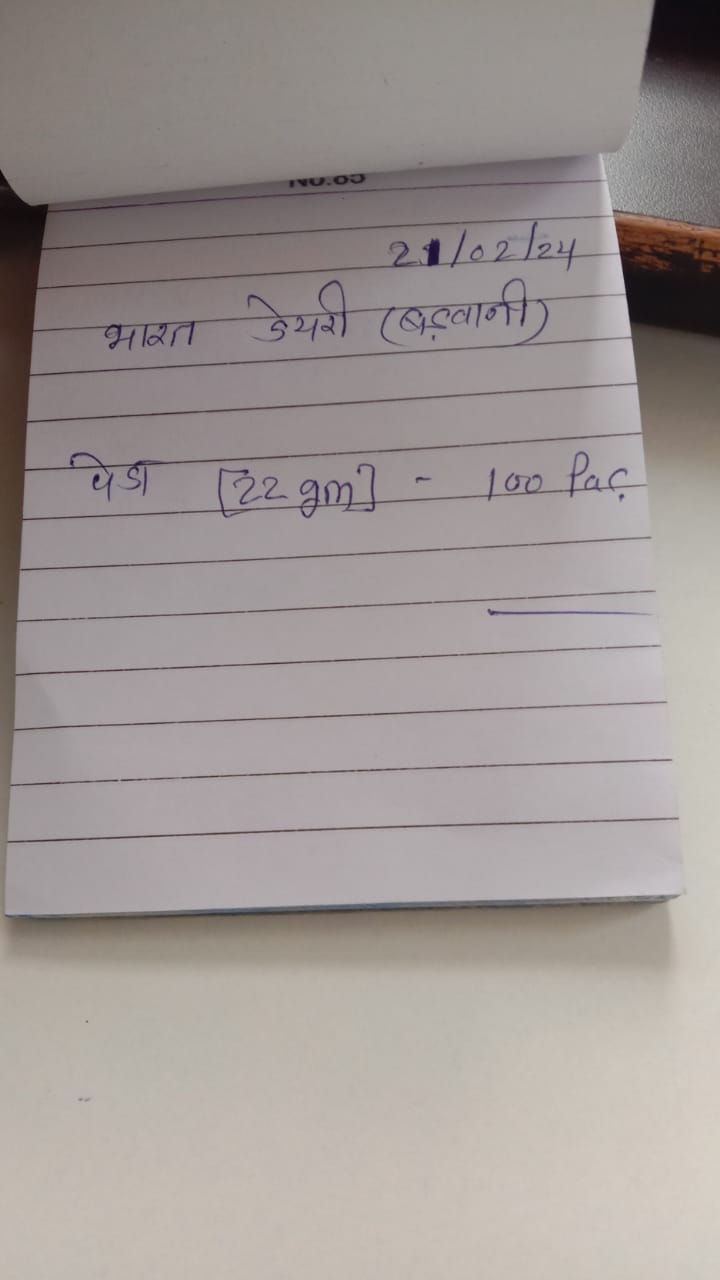 No.85
21/02/24
भारत डेयरी (बड़वानी)
पेडा [22 gm] - 100 Pac.